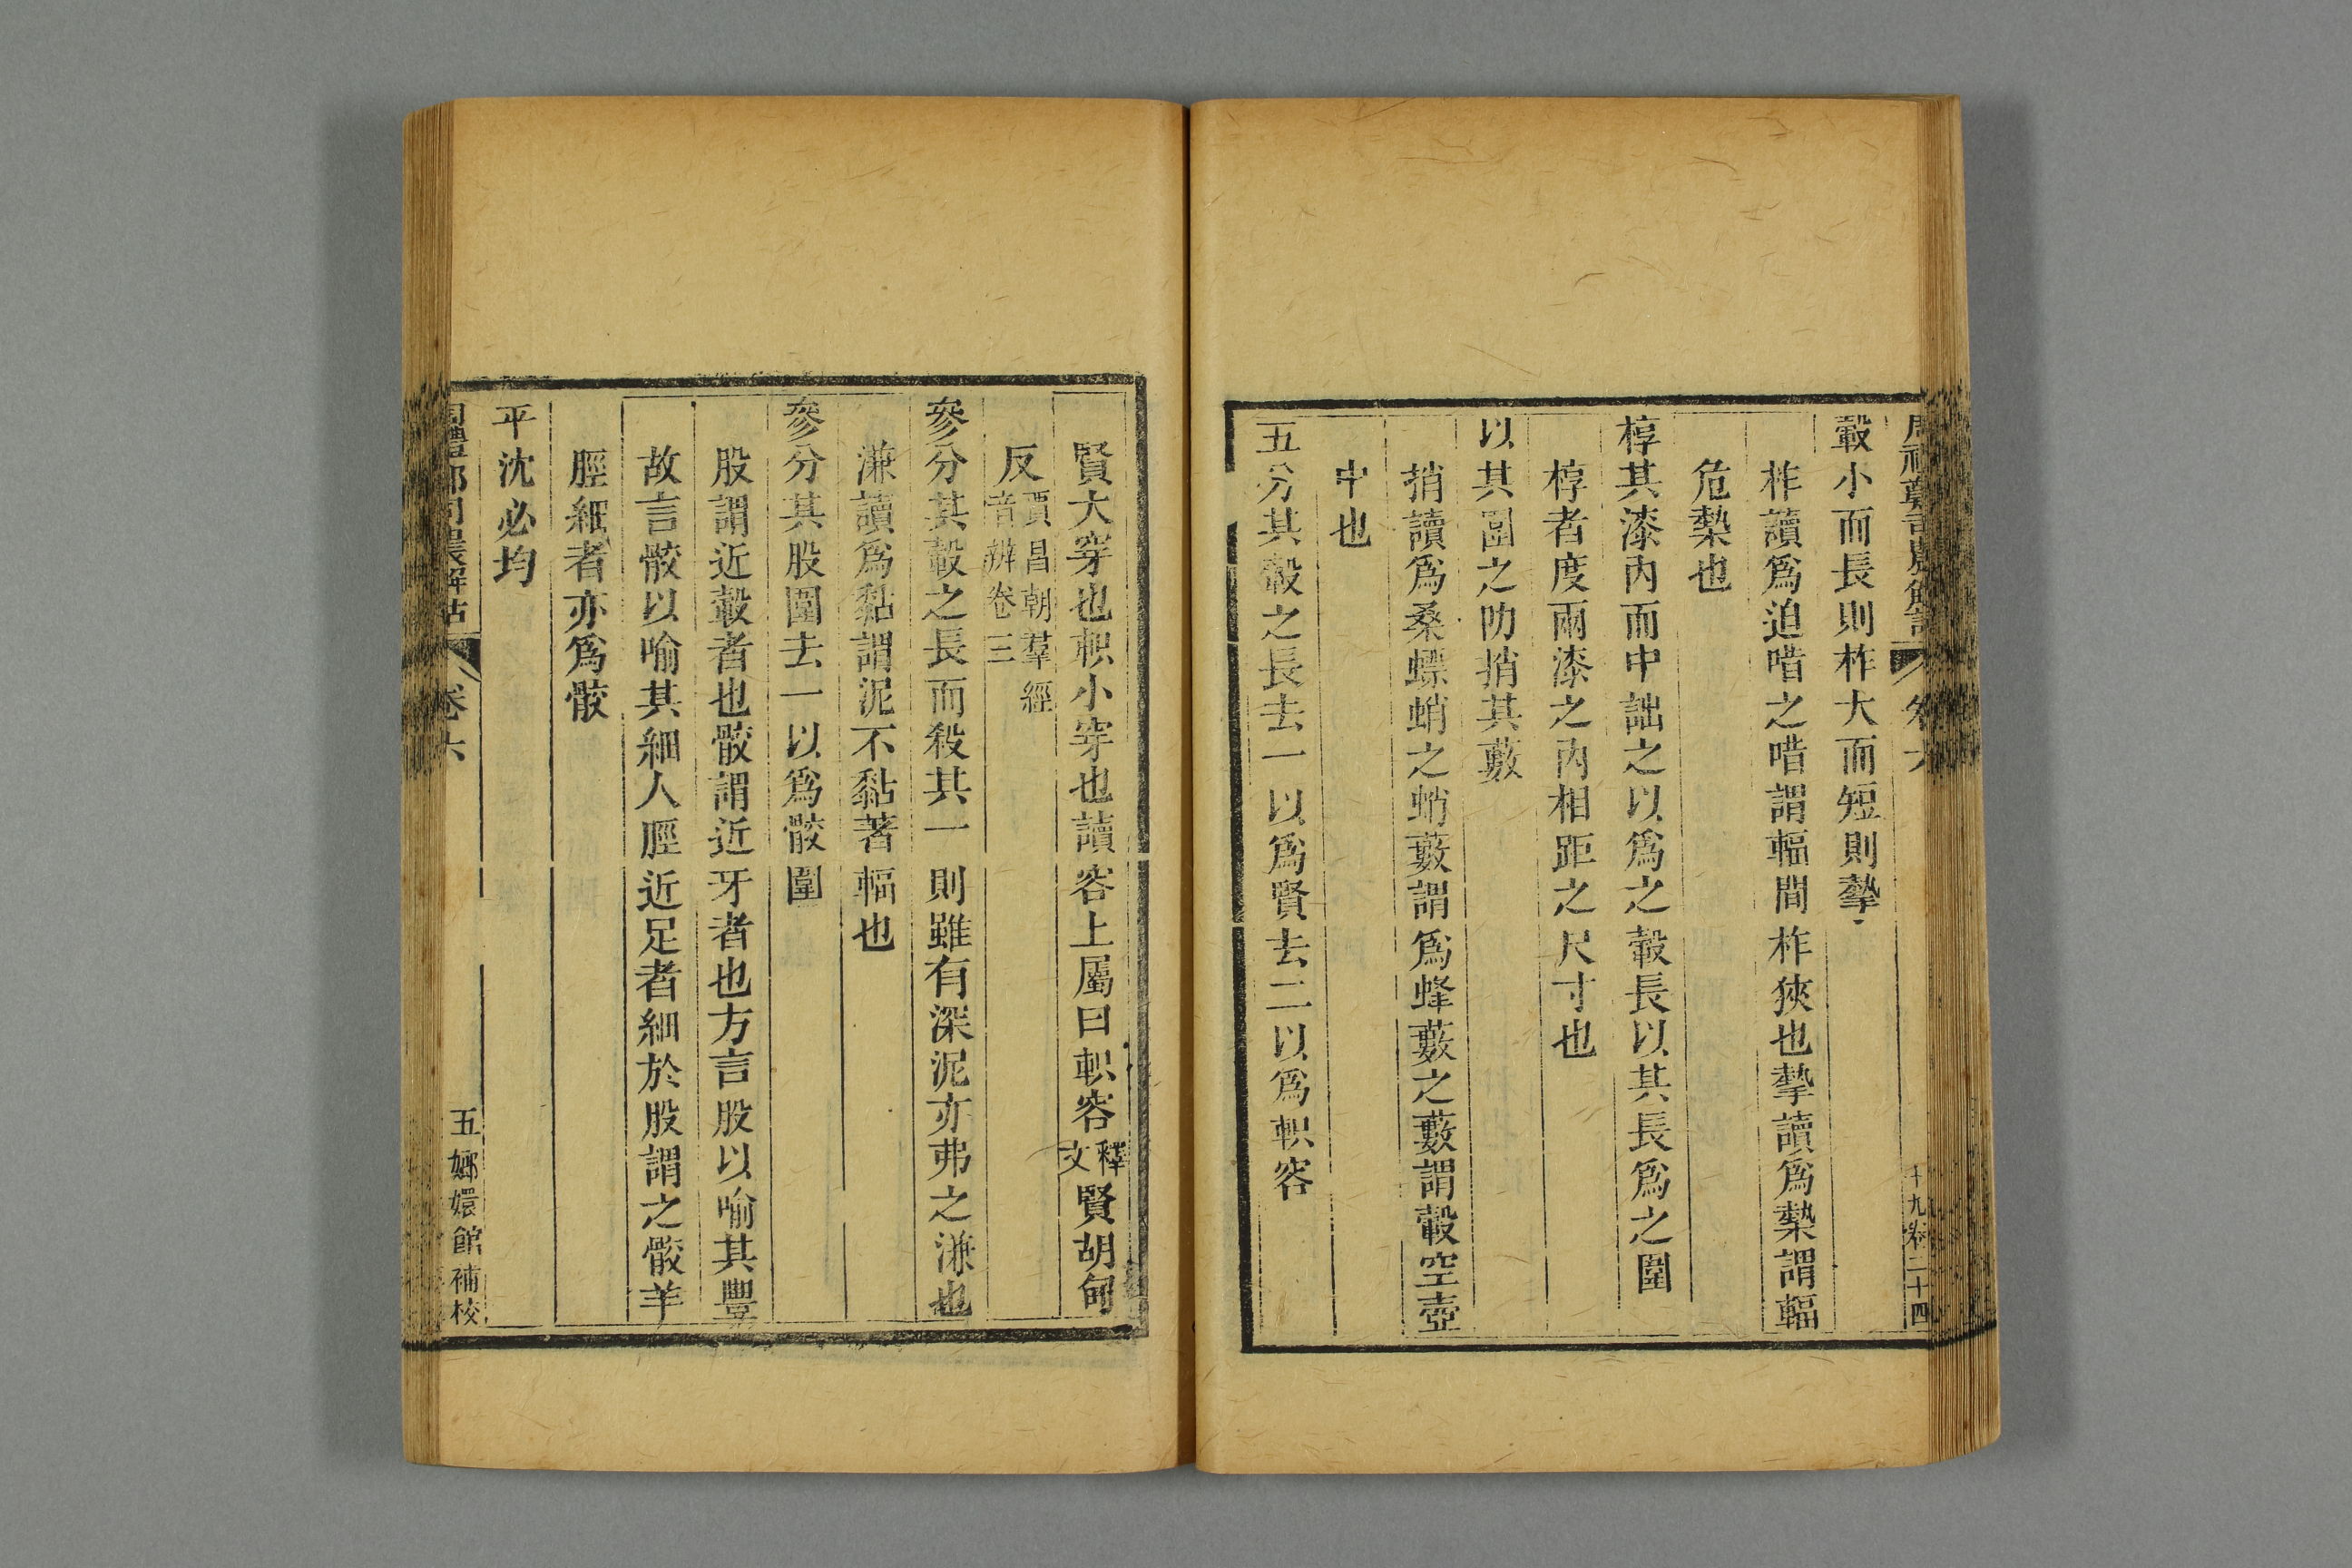 轂小而長則柞大而短則摯
柞讀爲迫唶之唶謂輻間柞狹也摯讀爲槷謂輻
危槷也
椁其漆內而中詘之以爲之轂長以其長爲之圍
椁者度兩漆之內相距之尺寸也
以其圍之阞捎其藪
捎讀爲桑螵蛸之蛸藪謂爲蜂藪之藪謂轂空壺
中也
五分其轂之長去一以爲賢去二以爲軹容
賢大穿也軹小穿也讀容上屬曰軹容釋文賢胡甸
反賈昌朝羣經音辨卷三
參分其轂之長而殺其一則雖有深泥亦弗之溓也
溓讀爲黏謂泥不黏著輻也
參分其股圍去一以爲骹圍
股謂近轂者也骹謂近牙者也方言股以喻其豐
故言骹以喻其細人脛近足者細於股謂之骹羊
脛細者亦爲骹
平沈必均
卷六
五嫏嬛館補校